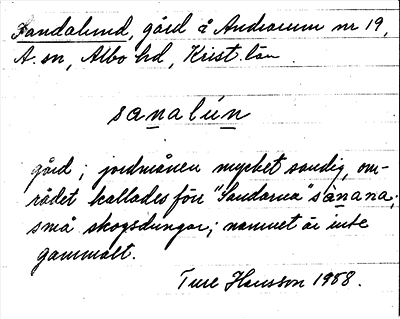 Sandalund, gård å Andrarum nr 19,
A. sn, Albo hd, Krist. län.
sanalún
gård; jordmånen mycket sandig, om-
rådet kallades förr "Sandarna" sànana;
små skogsdungar; namnet är inte
gammalt.
Ture Hansson 1958.